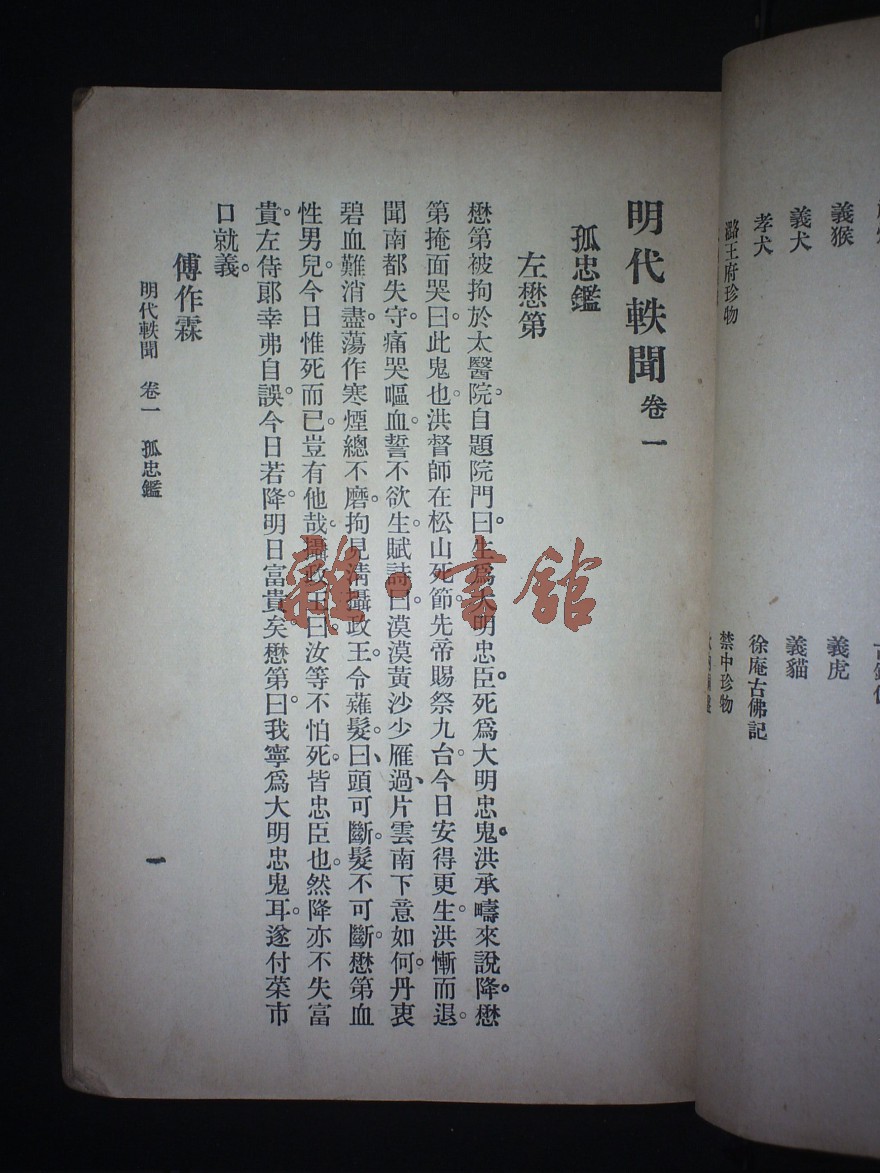 義猴
義虎
義犬
義貓
孝犬
徐庵古佛記
潞王府珍物
禁中珍物
明代軼聞 卷一
孤忠鑑
左懋第
懋第被拘於太醫院。自題院門曰。生爲大明忠臣。死爲大明忠鬼。洪承疇來說降。懋
第掩面哭曰。此鬼也。洪督師在松山死節。先帝賜祭九台。今日安得更生。洪慚而退。
聞南都失守。痛哭嘔血。誓不欲生。賦詩曰。漠漠黃沙少雁過、片雲南下意如何。丹衷
碧血難消盡。蕩作寒煙總不磨。拘見清攝政王。令薙髮、曰。頭可斷。髮不可斷。懋第血
性男兒。今日惟死而已。豈有他哉。攝政王曰。汝等不怕死。皆忠臣也。然降亦不失富
貴。左侍郞幸弗自誤。今日若降。明日富貴矣。懋第曰。我寧爲大明忠鬼耳。遂付菜市
口就義。
傅作霖
明代軼聞 卷一 孤忠鑑
一
雜·書館